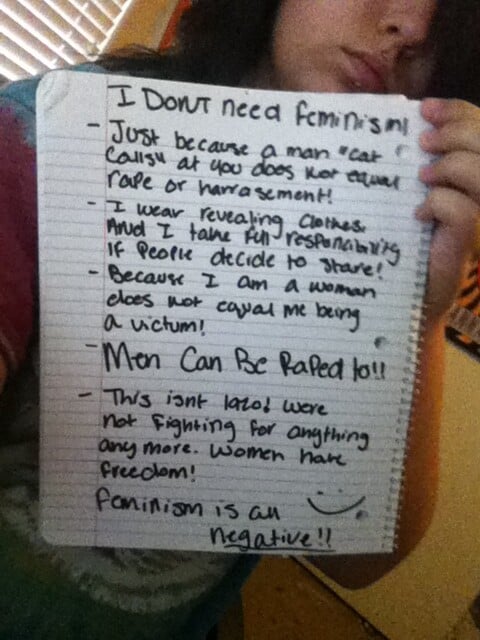 I Don't need Feminism!
- Just because a man "cat
Calls" at you does not equal
rape or harrasement!
- I wear revealing clothes.
And I take full responcibility
If People decide to stare!
- Because I am a woman
does not equal me being
a victum!
- Men Can Be Raped to!!
- This isnt 1920! Were
not Fighting for anything
any more. Women have
freedom!
Feminism is an
negative!!